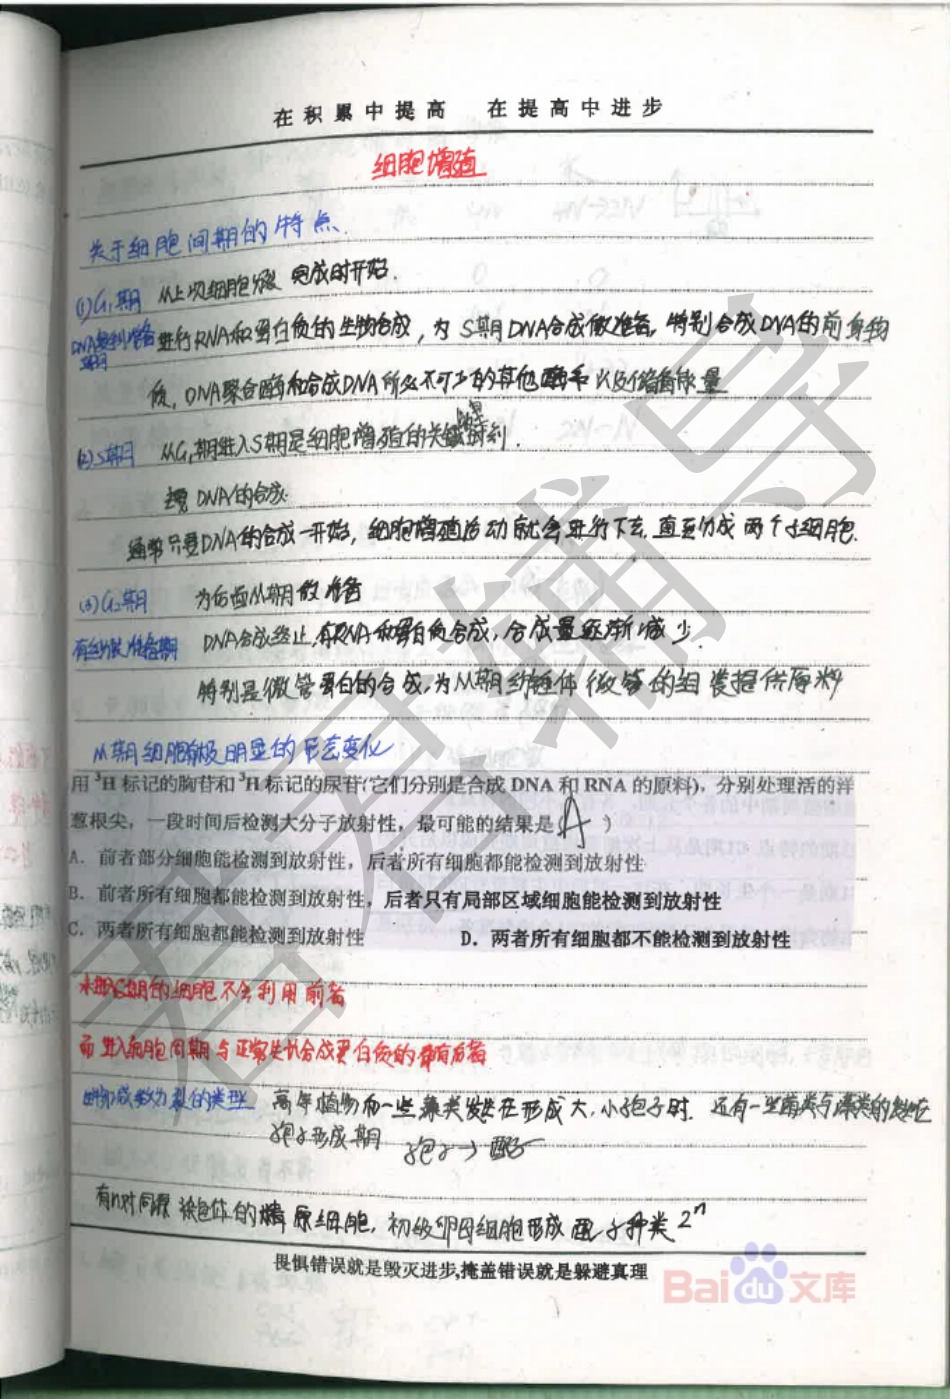 在积累中提高 在提高中进步
细胞增殖
关于细胞间期的特点、
(1)G₁期 从上次细胞分裂完成时开始.
DNA复制准备 进行RNA和蛋白质的生物合成，为S期DNA合成做准备，特别合成DNA的前身物
质，DNA聚合酶和合成DNA所必不可少的其他酶系以及储备能量
(2)S期 从G₁期进入S期是细胞增殖的关键时刻.
DNA的合成.
通常只要DNA的合成一开始，细胞增殖活动就会进行下去，直至分成两个子细胞.
(3)G₂期 为后面M期做准备
有丝分裂准备期 DNA合成终止，有RNA和蛋白质合成，合成量逐渐减少.
特别是微管蛋白的合成，为M期纺锤体微管的组装提供原料
M期细胞有极明显的形态变化
用³H标记的胸苷和³H标记的尿苷(它们分别是合成DNA和RNA的原料)，分别处理活的洋
葱根尖，一段时间后检测大分子放射性，最可能的结果是(A)
A．前者部分细胞能检测到放射性，后者所有细胞都能检测到放射性
B．前者所有细胞都能检测到放射性，后者只有局部区域细胞能检测到放射性
C．两者所有细胞都能检测到放射性 D．两者所有细胞都不能检测到放射性
未进入S期的细胞不会利用前者
而进入细胞周期与正常合成蛋白质的都有后者
高等植物和一些藻类发生在形成大，小孢子时. 还有一些菌类与藻类的发生在
孢子形成期 孢子→配子
有n对同源染色体的精原细胞，初级卵母细胞形成配子种类2ⁿ
畏惧错误就是毁灭进步,掩盖错误就是躲避真理
君君辅导
Bai du 文库